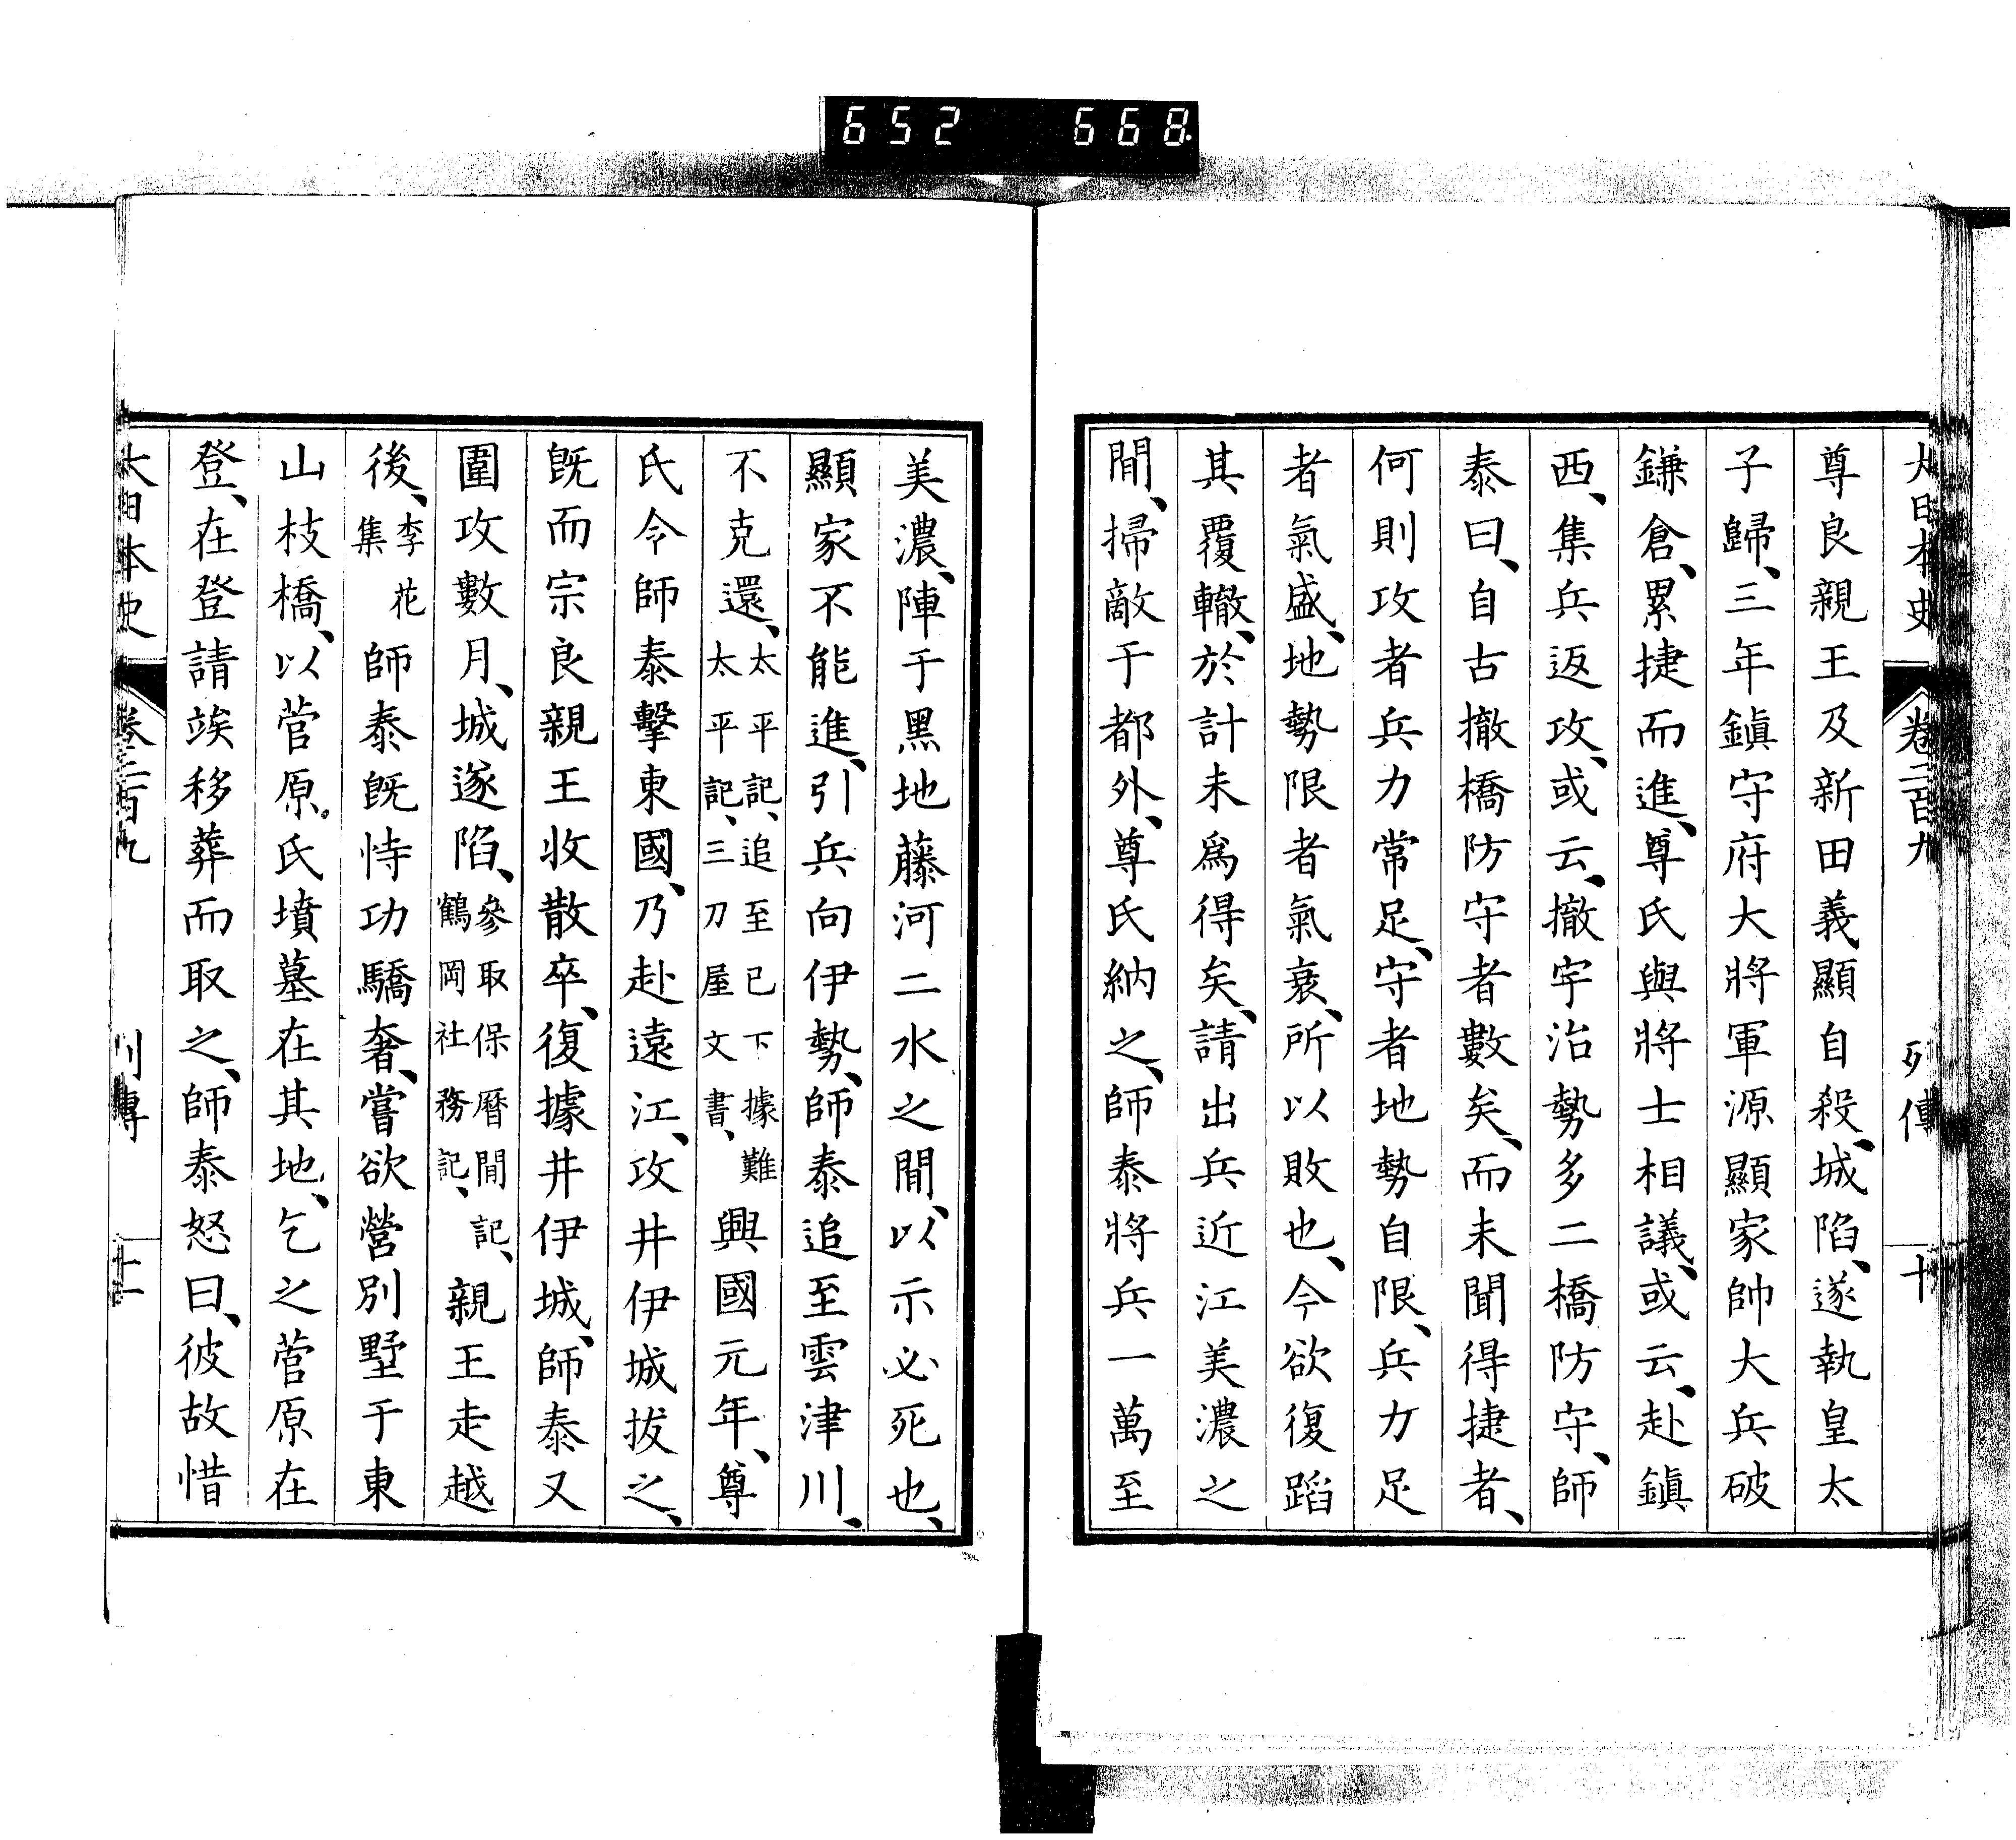 652 668
大日本史 卷二百九 列傳 十
尊良親王及新田義顯自殺、城陷、遂執皇太
子歸、三年鎭守府大將軍源顯家帥大兵破
鎌倉、累捷而進、尊氏與將士相議、或云、赴鎭
西、集兵返攻、或云、撤宇治勢多二橋防守、師
泰曰、自古撤橋防守者數矣、而未聞得捷者、
何則攻者兵力常足、守者地勢自限、兵力足
者氣盛、地勢限者氣衰、所以敗也、今欲復蹈
其覆轍、於計未爲得矣、請出兵近江美濃之
間、掃敵于都外、尊氏納之、師泰將兵一萬至
美濃、陣于黑地藤河二水之間、以示必死也、
顯家不能進、引兵向伊勢、師泰追至雲津川、
不克還、太平記、追至已下據難太平記、三刀屋文書、興國元年、尊
氏令師泰擊東國、乃赴遠江、攻井伊城拔之、
旣而宗良親王收散卒、復據井伊城、師泰又
圍攻數月、城遂陷、參取保曆間記、鶴岡社務記、親王走越
後、李花集師泰旣恃功驕奢、嘗欲營別墅于東
山枝橋、以菅原氏墳墓在其地、乞之菅原在
登、在登請竢移葬而取之、師泰怒曰、彼故惜
大日本史 卷二百九 列傳 十一